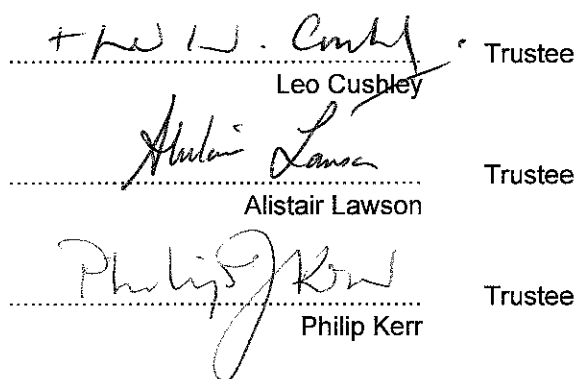 + Leo W. Cushley Trustee
Leo Cushley
Alistair Lawson Trustee
Alistair Lawson
Philip J Kerr Trustee
Philip Kerr